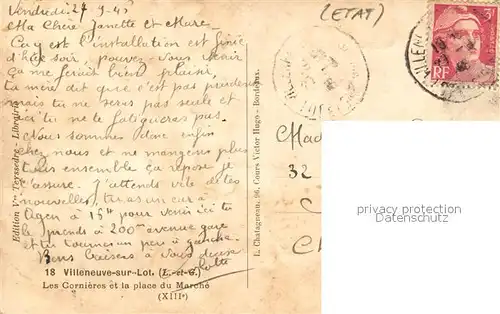 Vendredi 27-9-45
Ma Chère Janette et Mare.
Ca y est l'installation est finie
d'hier soir, pouvez-vous venir
ça me ferait bien plaisir,
ta mère dit que c'est pas prudent
mais tu ne seras pas seule et
ici tu ne te fatigueras pas.
Nous sommes donc enfin
chez nous et ne mangeons plus
tous ensemble ça repose je
t'assure. J'attends vite de tes
nouvelles, tu as un car à
Agen à 15h pour venir ici tu
le prends à 200m avenue gare
et tu tournes un peu à gauche.
Bons baisers à vous deux
(ETAT)
RF
Mad
32
Edition Vve Teyssedre - Librairie
E. Chatagneau, 96, Cours Victor Hugo - Bordeaux.
18 Villeneuve-sur-Lot. (L.-et-G.)
Les Cornières et la place du Marché
(XIIIe)
privacy protection
Datenschutz